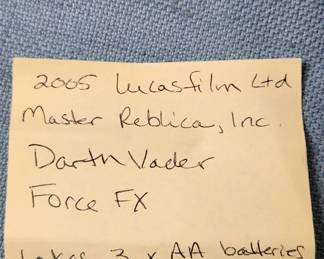 2005 Lucasfilm Ltd
Master Reblica, Inc.
Darth Vader
Force FX
takes 3 x AA batteries